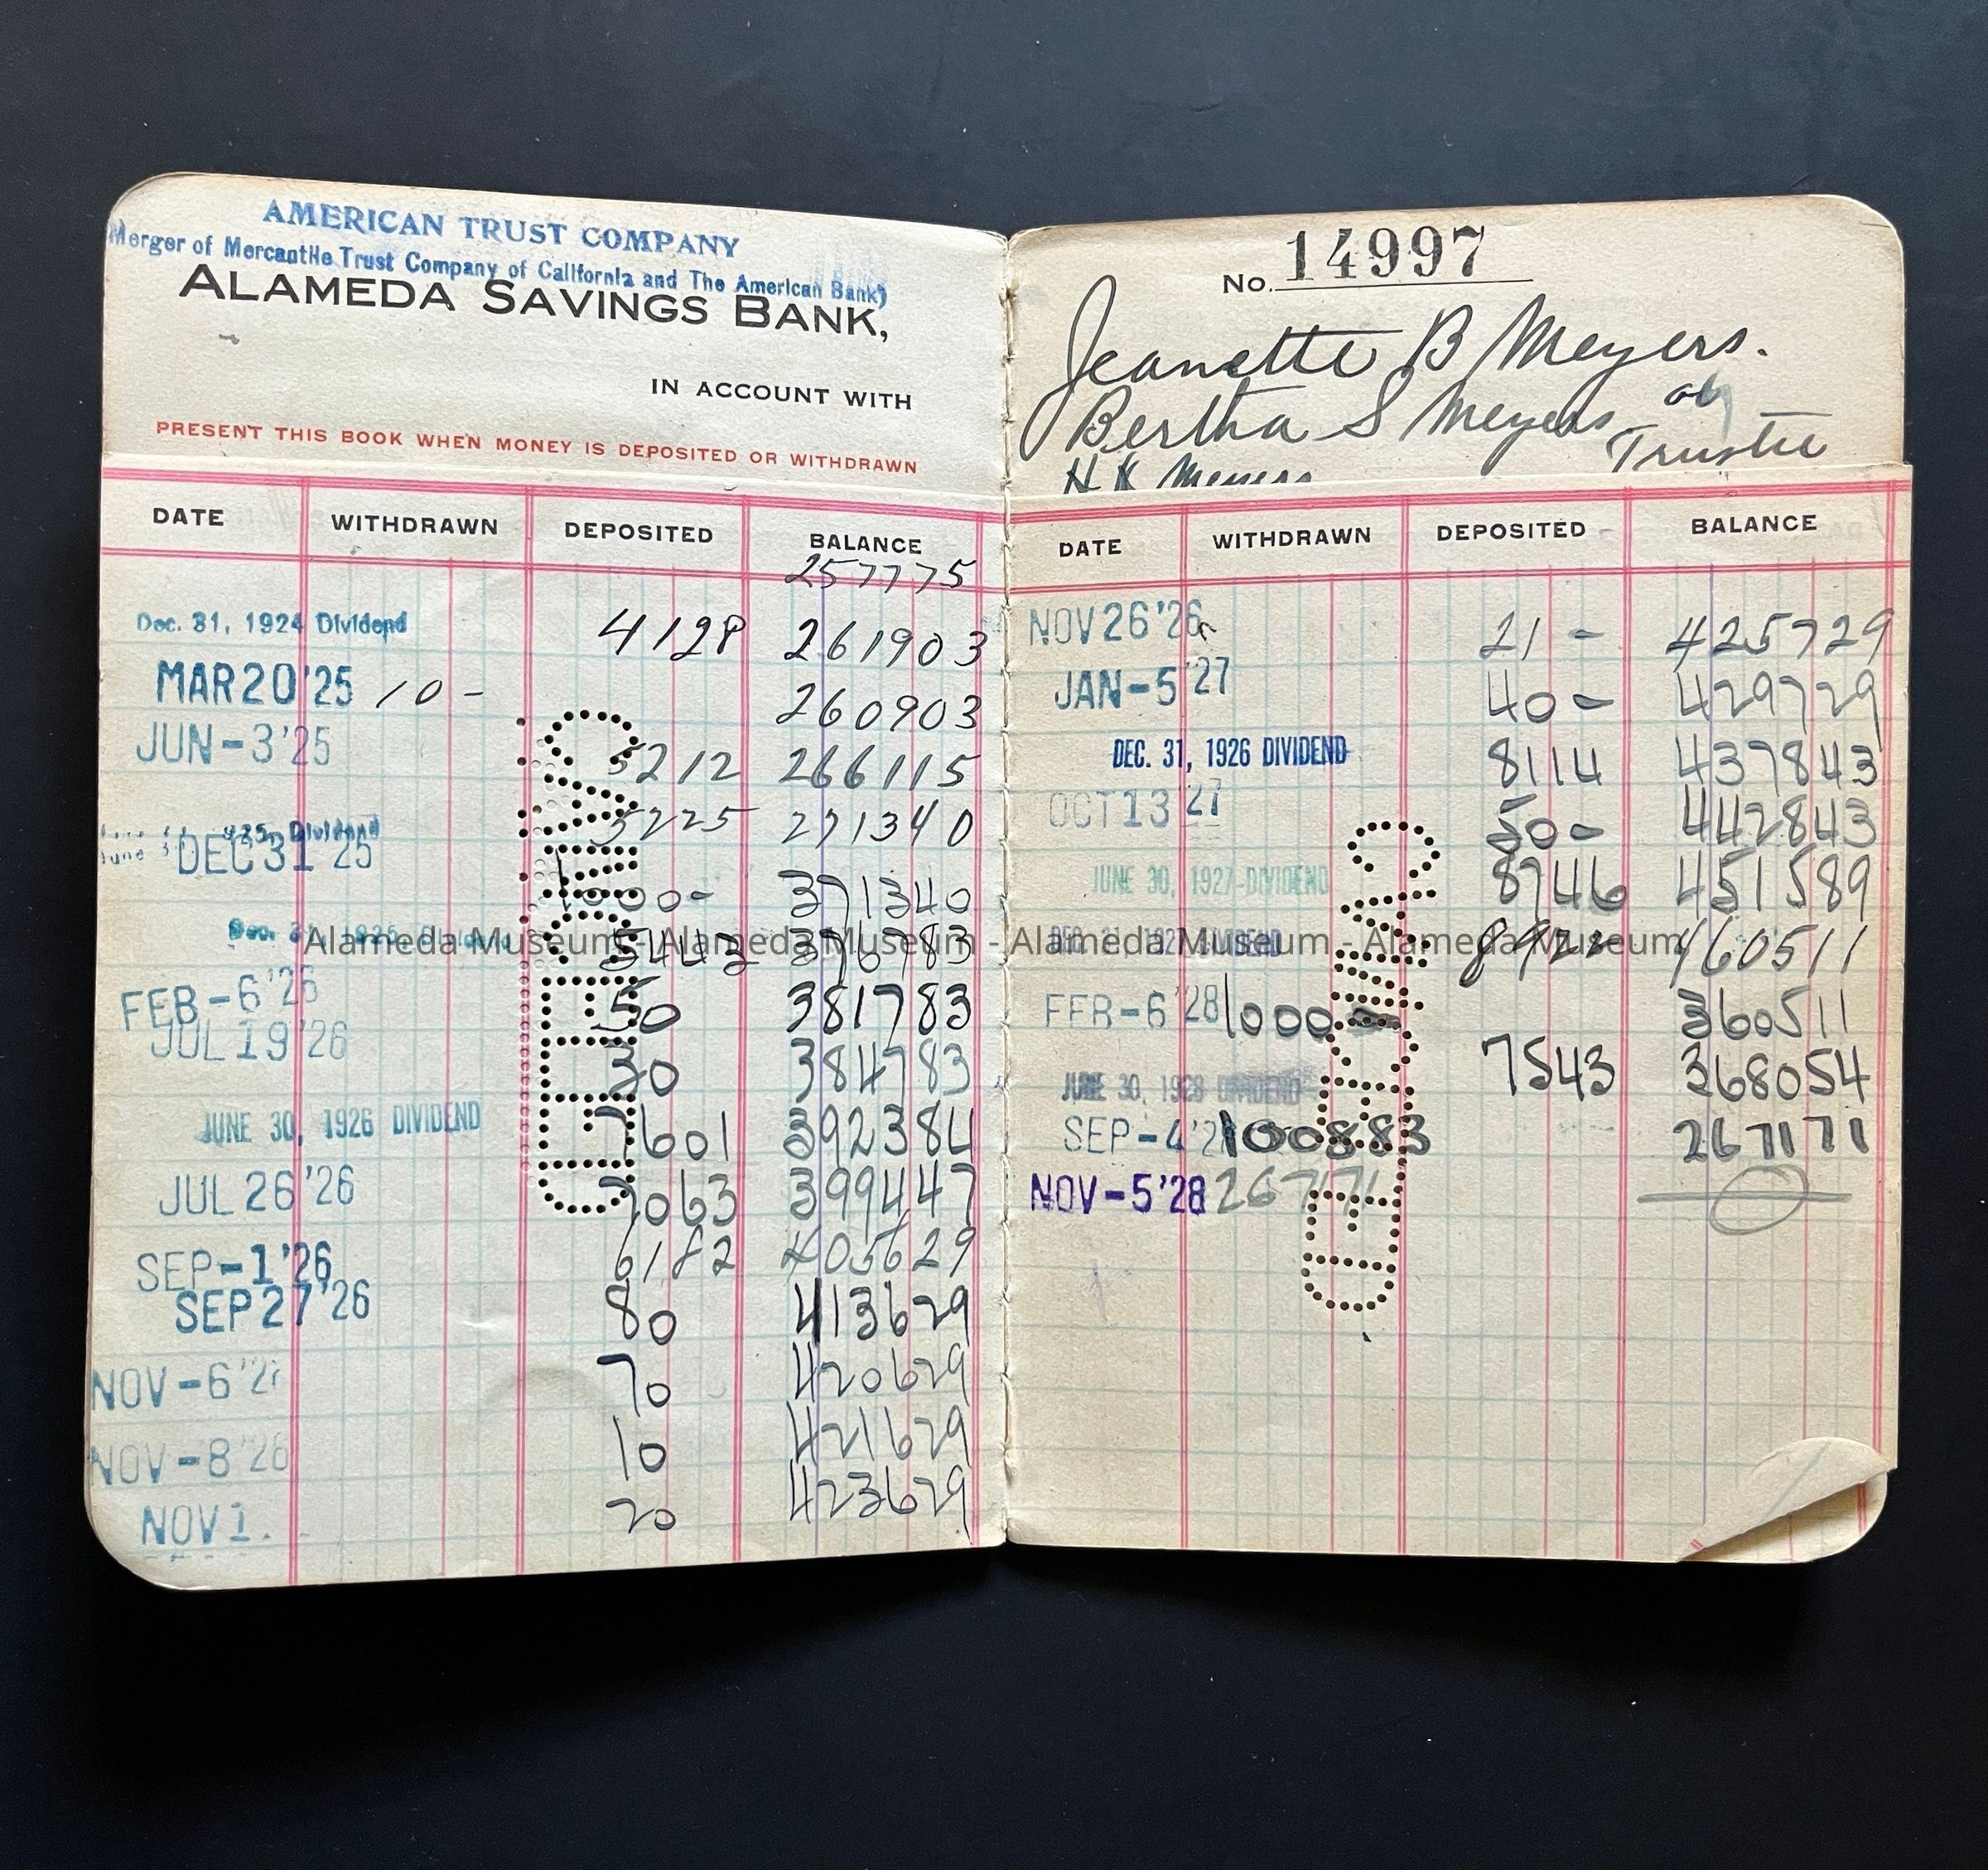 AMERICAN TRUST COMPANY
Merger of Mercantile Trust Company of California and The American Bank)
ALAMEDA SAVINGS BANK,
IN ACCOUNT WITH
PRESENT THIS BOOK WHEN MONEY IS DEPOSITED OR WITHDRAWN
DATE WITHDRAWN DEPOSITED BALANCE
257775
Dec. 31, 1924 Dividend 4128 261903
MAR 20 '25 10 - 260903
JUN - 3 '25 5212 266115
5225 271340
DEC 31 '25 1000 - 371340
5443 376783
FEB - 6 '26 50 381783
JUL 19 '26 30 384783
JUNE 30, 1926 DIVIDEND 7601 392384
JUL 26 '26 7063 399447
SEP - 1 '26 6182 405629
SEP 27 '26 80 413629
NOV - 6 '2 70 420629
NOV - 8 '26 10 421629
NOV 1 20 423629
No. 14997
Jeanette B Meyers.
Bertha S Meyers
Trustee
H K Meyers
DATE WITHDRAWN DEPOSITED BALANCE
NOV 26 '26 21 - 425729
JAN - 5 '27 40 - 429729
DEC. 31, 1926 DIVIDEND 8114 437843
OCT 13 '27 50 - 442843
JUNE 30, 1927 DIVIDEND 8746 451589
8922 460511
FEB - 6 '28 1000 - 360511
JUNE 30, 1928 DIVIDEND 7543 368054
SEP - 4 '2 100883 267171
NOV - 5 '28 267171
CANCELLED
Alameda Museum - Alameda Museum - Alameda Museum - Alameda Museum